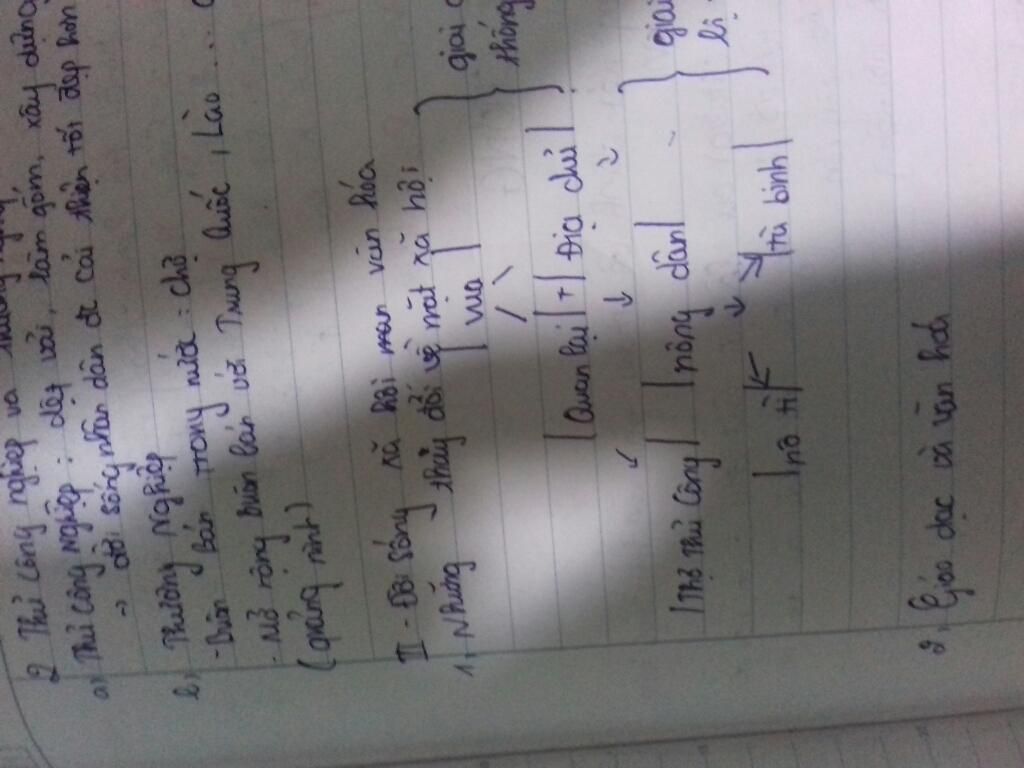 2 Thủ công nghiệp và thương nghiệp
a) Thủ công nghiệp : dệt vải, làm gốm, xây dựng
→ đời sống nhân dân đc cải thiện tốt đẹp hơn
b) Thương nghiệp
- Buôn bán trong nước : chợ
- Mở rộng buôn bán với Trung Quốc, Lào ....
(Quảng Ninh)
II - Đời sống xã hội văn hóa
1, Những thay đổi về mặt xã hội
vua
giai
thống
Quan lại + Địa chủ
Thợ thủ công nông dân
giai
bị
nô tì tù binh
2, Giáo dục và văn hoá